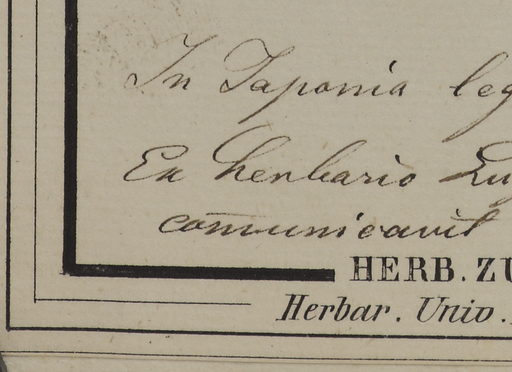 In Japonia leg
Ex herbario Lug
comunicavit
HERB. ZU
Herbar. Univ.